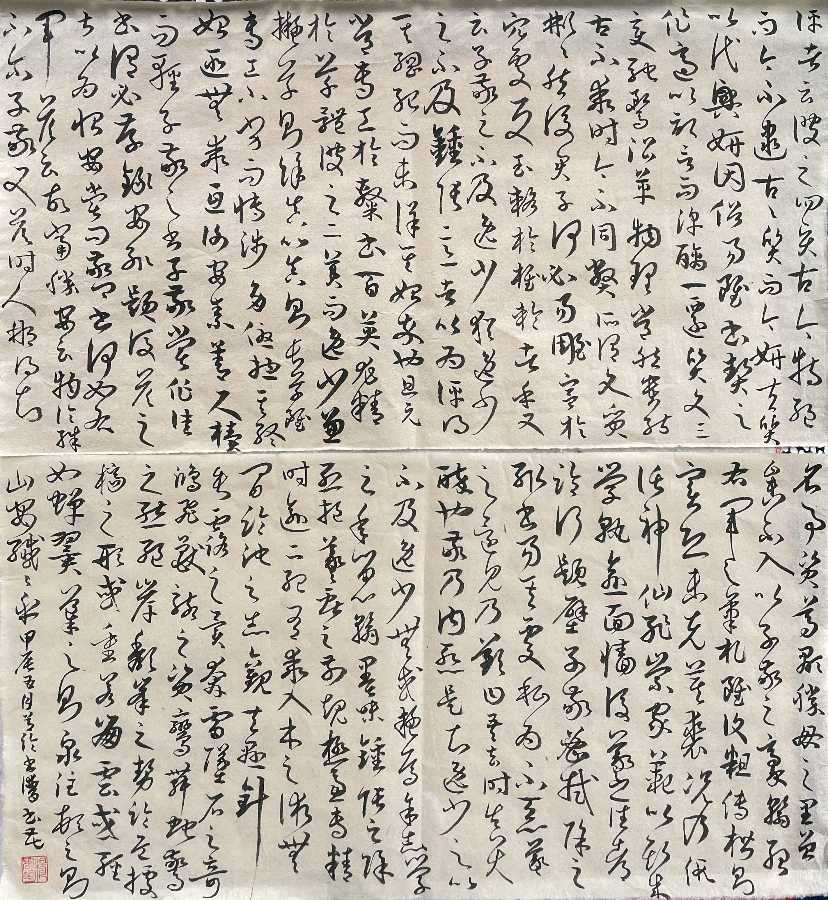 評者云彼之四賢古今特絕
而今不逮古古質而今妍夫質
以代興妍因俗易雖書契之
作適以記言而淳醨一遷質文三
變馳鶩沿革物理常然貴能
古不乖時今不同弊所謂文質
彬彬然後君子何必易雕宮於
穴處反玉輅於椎輪者乎又
云子敬之不及逸少猶逸少
之不及鍾張意者以為評得
其綱紀而未詳其始卒也且元
常專工於隸書百英尤精
於草體彼之二美而逸少兼
擬草則餘真比真則長草雖
專工小劣而博涉多優揔其終
始匪無乖互謝安素善尺牘
而輕子敬之書子敬嘗作佳
書謂必存錄安輒題後答之
甚以為恨安嘗問敬卿書何如右
軍答云故當勝安云物論殊
不爾子敬又答時人那得知
名事資尊顯勝母之里曾
參不入以子敬之豪翰紹
右軍之筆札雖復粗傳楷則
實恐未克箕裘況乃假
託神仙恥崇家範以斯成
學孰愈面牆後羲之往都
臨行題壁子敬密拭除之
輒書易其處私為不惡羲
之還見乃歎曰吾去時真大
醉也敬乃內慚是知逸少之比
不及逸少無或疑焉余志學
之年留心翰墨味鍾張之餘
烈挹羲獻之前規極慮專精
時逾二紀有乖入木之術無
間臨池之志觀夫懸針
垂露之異奔雷墜石之奇
鴻飛獸駭之資鸞舞蛇驚
之態絕岸頹峯之勢臨危據
槁之形或重若崩雲或輕
如蟬翼導之則泉注頓之則
山安纖纖乎甲辰五月